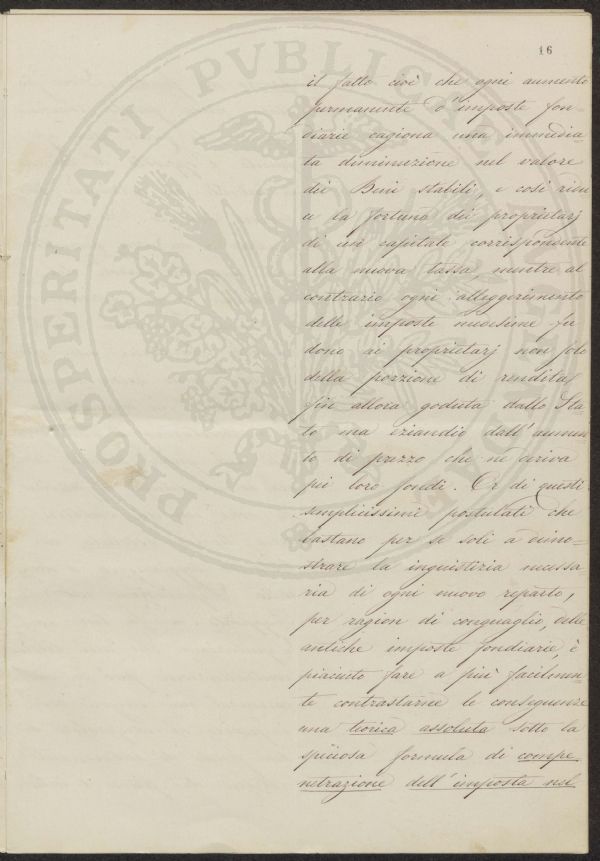 16
il fatto cioè che ogni aumento
permanente d'imposte fon-
diarie cagiona una immedia-
ta diminuzione nel valore
dei Beni stabili, e così ridu
ce la fortuna dei proprietarj
di un capitale corrispondente
alla nuova tassa, mentre al
contrario ogni alleggerimento
delle imposte medesime fa
dono ai proprietarj non solo
della porzione di rendita
fin allora goduta dallo Sta-
to ma eziandio dall'aumen
to di prezzo che ne deriva
pei loro fondi. Or di questi
semplicissimi postulati che
bastano per se soli a dimo-
strare la ingiustizia necessa
ria di ogni nuovo reparto,
per ragion di conguaglio, delle
antiche imposte fondiarie, è
piaciuto fare a più facilmen-
te contrastarne le conseguenze
una teorica assoluta sotto la
speciosa formula di compe
netrazione dell'imposta nel
PROSPERITATI PVBLICAE